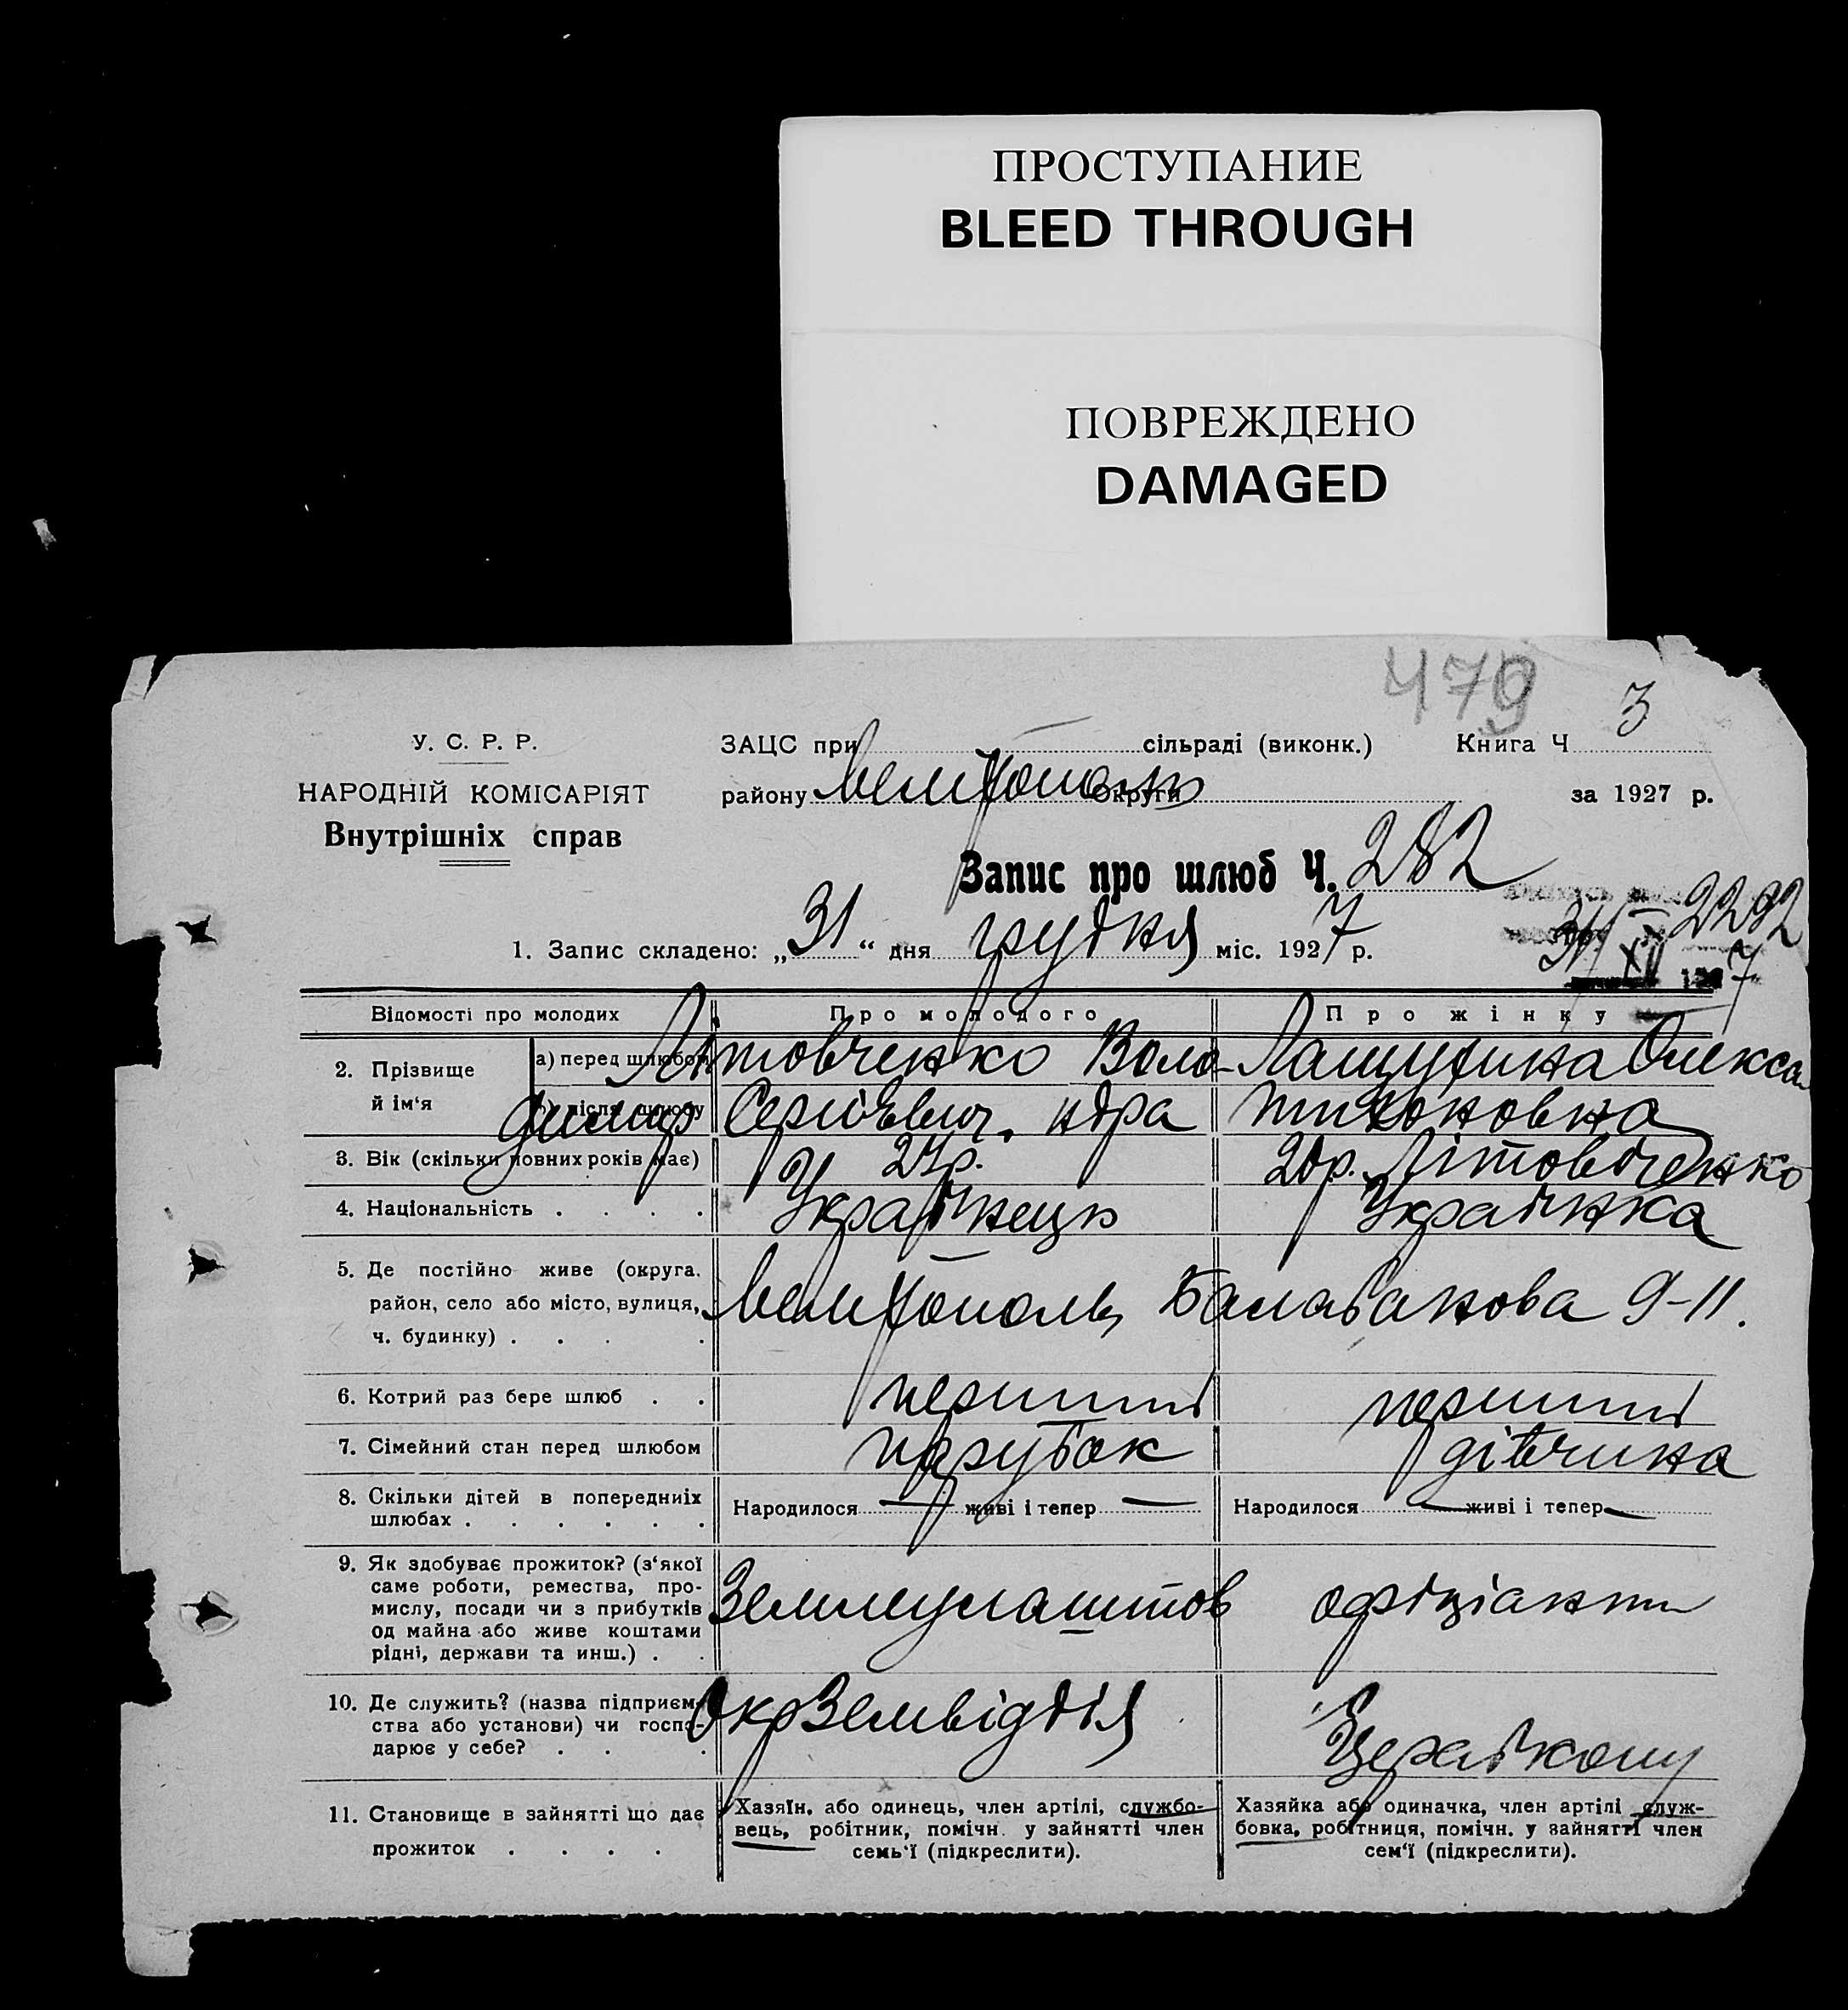 ПРОСТУПАНИЕ
BLEED THROUGH
ПОВРЕЖДЕНО
DAMAGED
479
3
У. С. Р. Р.
НАРОДНІЙ КОМІСАРІЯТ
Внутрішніх справ
ЗАЦС при сільраді (виконк.) Книга Ч
району Мелітополь Округи за 1927 р.
Запис про шлюб Ч. 282
1. Запис складено: „31“ дня грудня міс. 1927 р.
2292
31 XII 1927
Відомості про молодих Про молодого Про жінку
2. Прізвище й ім‘я
а) перед шлюбом
б) після шлюбу
Літовченко Воло-
димир Сергієвич,
Олекса
ндра Тихоновна
3. Вік (скільки повних років має) 24р. 20р. Літовченко
4. Національність . . . . Українець Українка
5. Де постійно живе (округа,
район, село або місто, вулиця,
ч. будинку) . . . .
Мелітополь, Балабанова 9-11.
6. Котрий раз бере шлюб . . перший перший
7. Сімейний стан перед шлюбом парубок дівчина
8. Скільки дітей в попередниіх
шлюбах . . . . . .
Народилося — живі і тепер — Народилося — живі і тепер —
9. Як здобуває прожиток? (з‘якої
саме роботи, ремества, про-
мислу, посади чи з прибутків
од майна або живе коштами
рідні, держави та инш.) . .
Землеулаштов офіціантк
10. Де служить? (назва підприєм-
ства або установи) чи госпо-
дарює у себе? . . .
ОкрЗемвідділ
11. Становище в зайнятті що дає
прожиток . . . .
Хазяїн, або одинець, член артілі, службо-
вець, робітник, помічн. у зайнятті член
семь‘ї (підкреслити).
Хазяйка або одиначка, член артілі служ-
бовка, робітниця, помічн. у зайнятті член
сем‘ї (підкреслити).